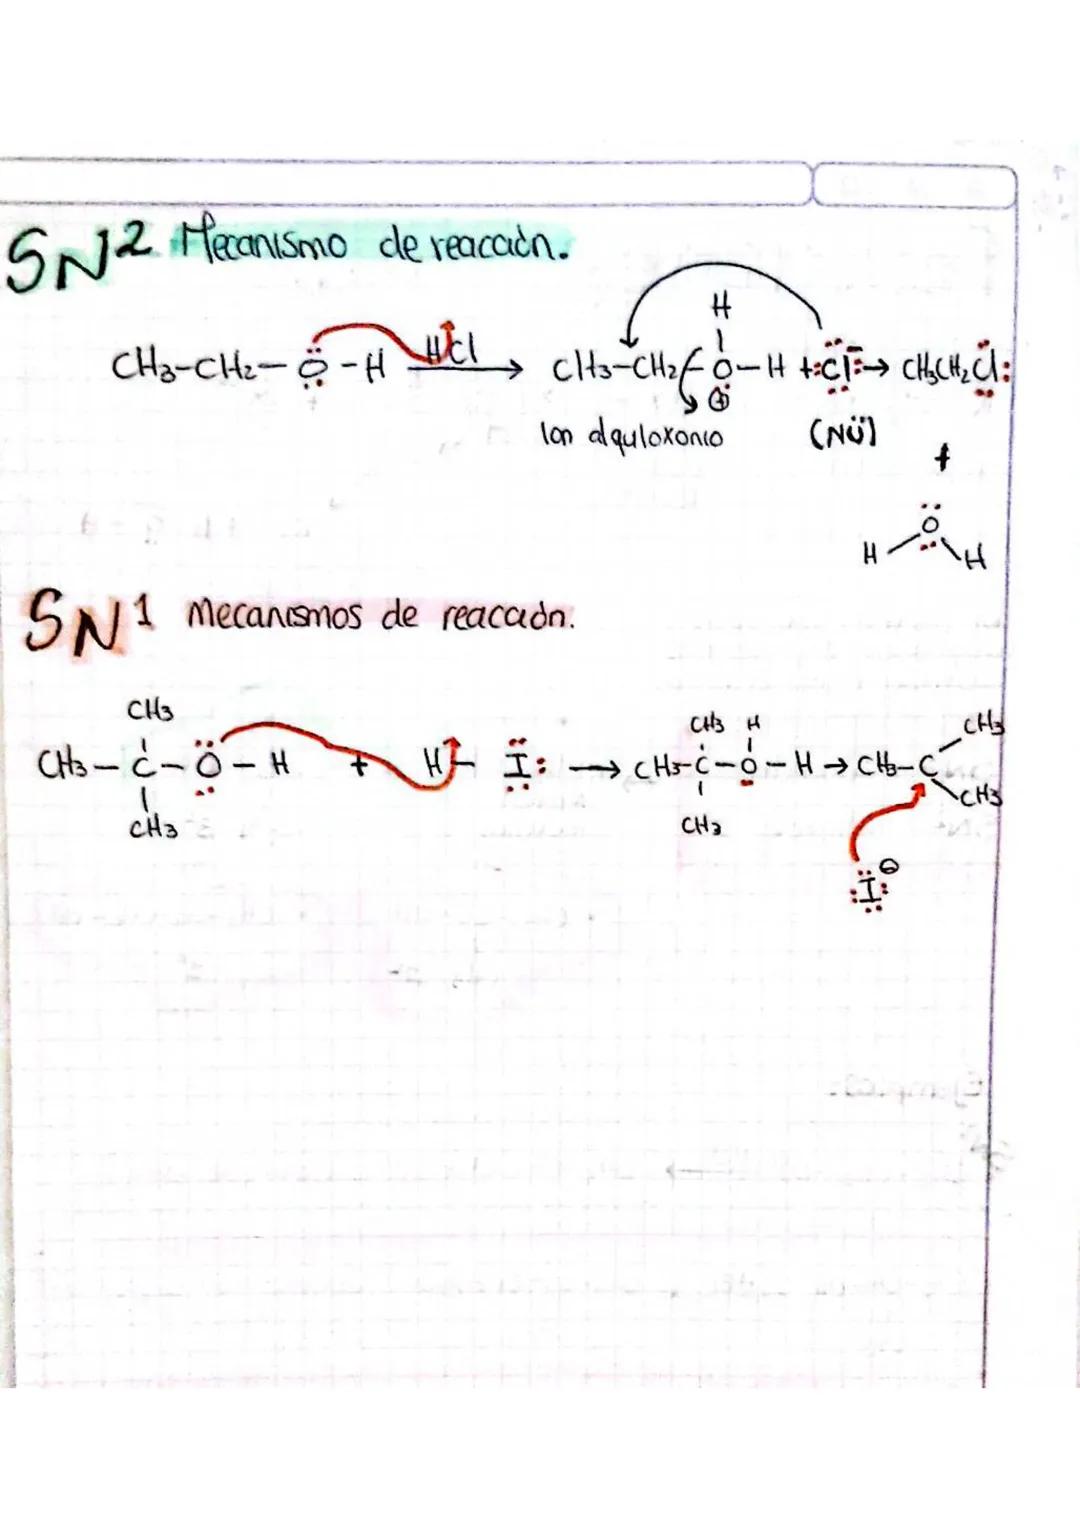 SN2 Mecanismo de reacción.
H
CH3-CH2-Ö-H HCl → CH3-CH2-O-H + :Cl:⁻ → CH3CH2Cl:
⊕
Ion alquiloxonio (NÜ)
+
O
H H
SN1 Mecanismos de reacción.
CH3 CH3 H CH3
CH3-C-Ö-H + H-I: → CH3-C-O-H → CH3-C
CH3
CH3 CH3
:I:⊖